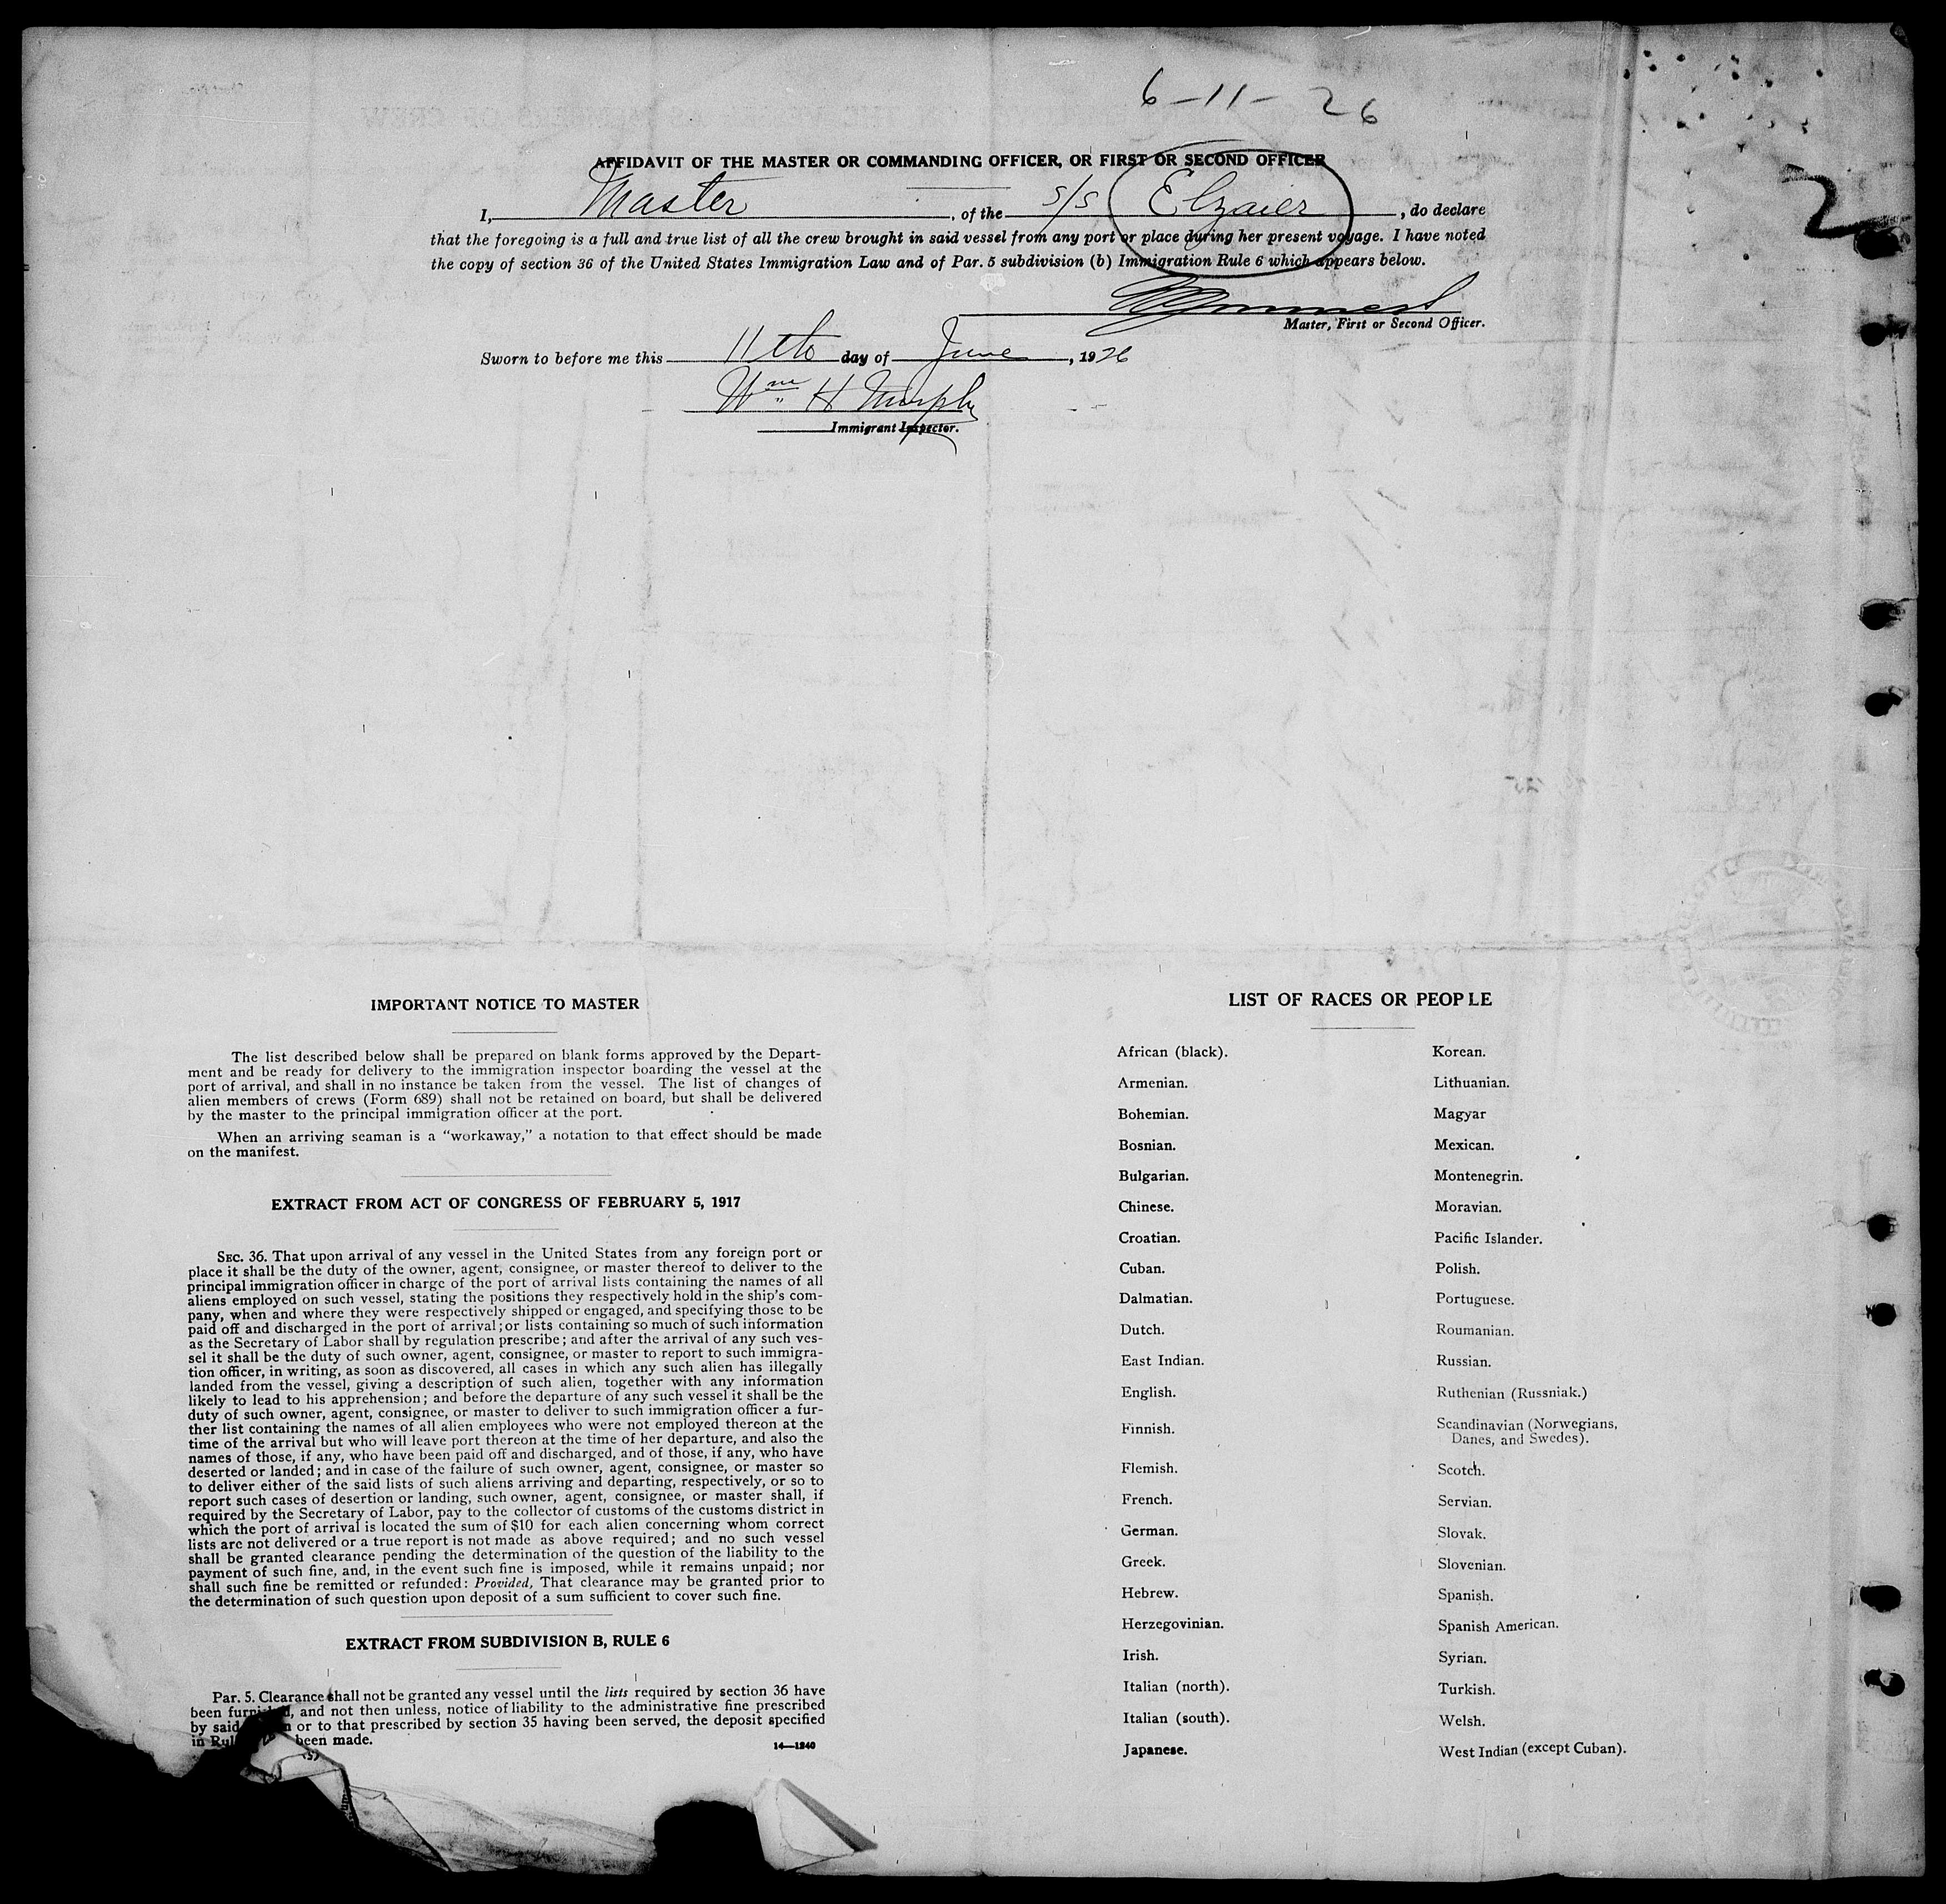 6-11-26
AFFIDAVIT OF THE MASTER OR COMMANDING OFFICER, OR FIRST OR SECOND OFFICER
2
I, Master, of the S/S Elzaier, do declare
that the foregoing is a full and true list of all the crew brought in said vessel from any port or place during her present voyage. I have noted
the copy of section 36 of the United States Immigration Law and of Par. 5 subdivision (b) Immigration Rule 6 which appears below.
Master, First or Second Officer.
Sworn to before me this 11th day of June, 1926
Wm H Murphy
Immigrant Inspector.
IMPORTANT NOTICE TO MASTER
The list described below shall be prepared on blank forms approved by the Depart-
ment and be ready for delivery to the immigration inspector boarding the vessel at the
port of arrival, and shall in no instance be taken from the vessel. The list of changes of
alien members of crews (Form 689) shall not be retained on board, but shall be delivered
by the master to the principal immigration officer at the port.
When an arriving seaman is a "workaway," a notation to that effect should be made
on the manifest.
EXTRACT FROM ACT OF CONGRESS OF FEBRUARY 5, 1917
SEC. 36. That upon arrival of any vessel in the United States from any foreign port or
place it shall be the duty of the owner, agent, consignee, or master thereof to deliver to the
principal immigration officer in charge of the port of arrival lists containing the names of all
aliens employed on such vessel, stating the positions they respectively hold in the ship's com-
pany, when and where they were respectively shipped or engaged, and specifying those to be
paid off and discharged in the port of arrival; or lists containing so much of such information
as the Secretary of Labor shall by regulation prescribe; and after the arrival of any such ves-
sel it shall be the duty of such owner, agent, consignee, or master to report to such immigra-
tion officer, in writing, as soon as discovered, all cases in which any such alien has illegally
landed from the vessel, giving a description of such alien, together with any information
likely to lead to his apprehension; and before the departure of any such vessel it shall be the
duty of such owner, agent, consignee, or master to deliver to such immigration officer a fur-
ther list containing the names of all alien employees who were not employed thereon at the
time of the arrival but who will leave port thereon at the time of her departure, and also the
names of those, if any, who have been paid off and discharged, and of those, if any, who have
deserted or landed; and in case of the failure of such owner, agent, consignee, or master so
to deliver either of the said lists of such aliens arriving and departing, respectively, or so to
report such cases of desertion or landing, such owner, agent, consignee, or master shall, if
required by the Secretary of Labor, pay to the collector of customs of the customs district in
which the port of arrival is located the sum of $10 for each alien concerning whom correct
lists are not delivered or a true report is not made as above required; and no such vessel
shall be granted clearance pending the determination of the question of the liability to the
payment of such fine, and, in the event such fine is imposed, while it remains unpaid; nor
shall such fine be remitted or refunded: Provided, That clearance may be granted prior to
the determination of such question upon deposit of a sum sufficient to cover such fine.
EXTRACT FROM SUBDIVISION B, RULE 6
Par. 5. Clearance shall not be granted any vessel until the lists required by section 36 have
been furnished, and not then unless, notice of liability to the administrative fine prescribed
by said or to that prescribed by section 35 having been served, the deposit specified
in Rule been made.
14—1240
LIST OF RACES OR PEOPLE
African (black).
Armenian.
Bohemian.
Bosnian.
Bulgarian.
Chinese.
Croatian.
Cuban.
Dalmatian.
Dutch.
East Indian.
English.
Finnish.
Flemish.
French.
German.
Greek.
Hebrew.
Herzegovinian.
Irish.
Italian (north).
Italian (south).
Japanese.
Korean.
Lithuanian.
Magyar
Mexican.
Montenegrin.
Moravian.
Pacific Islander.
Polish.
Portuguese.
Roumanian.
Russian.
Ruthenian (Russniak.)
Scandinavian (Norwegians,
Danes, and Swedes).
Scotch.
Servian.
Slovak.
Slovenian.
Spanish.
Spanish American.
Syrian.
Turkish.
Welsh.
West Indian (except Cuban).